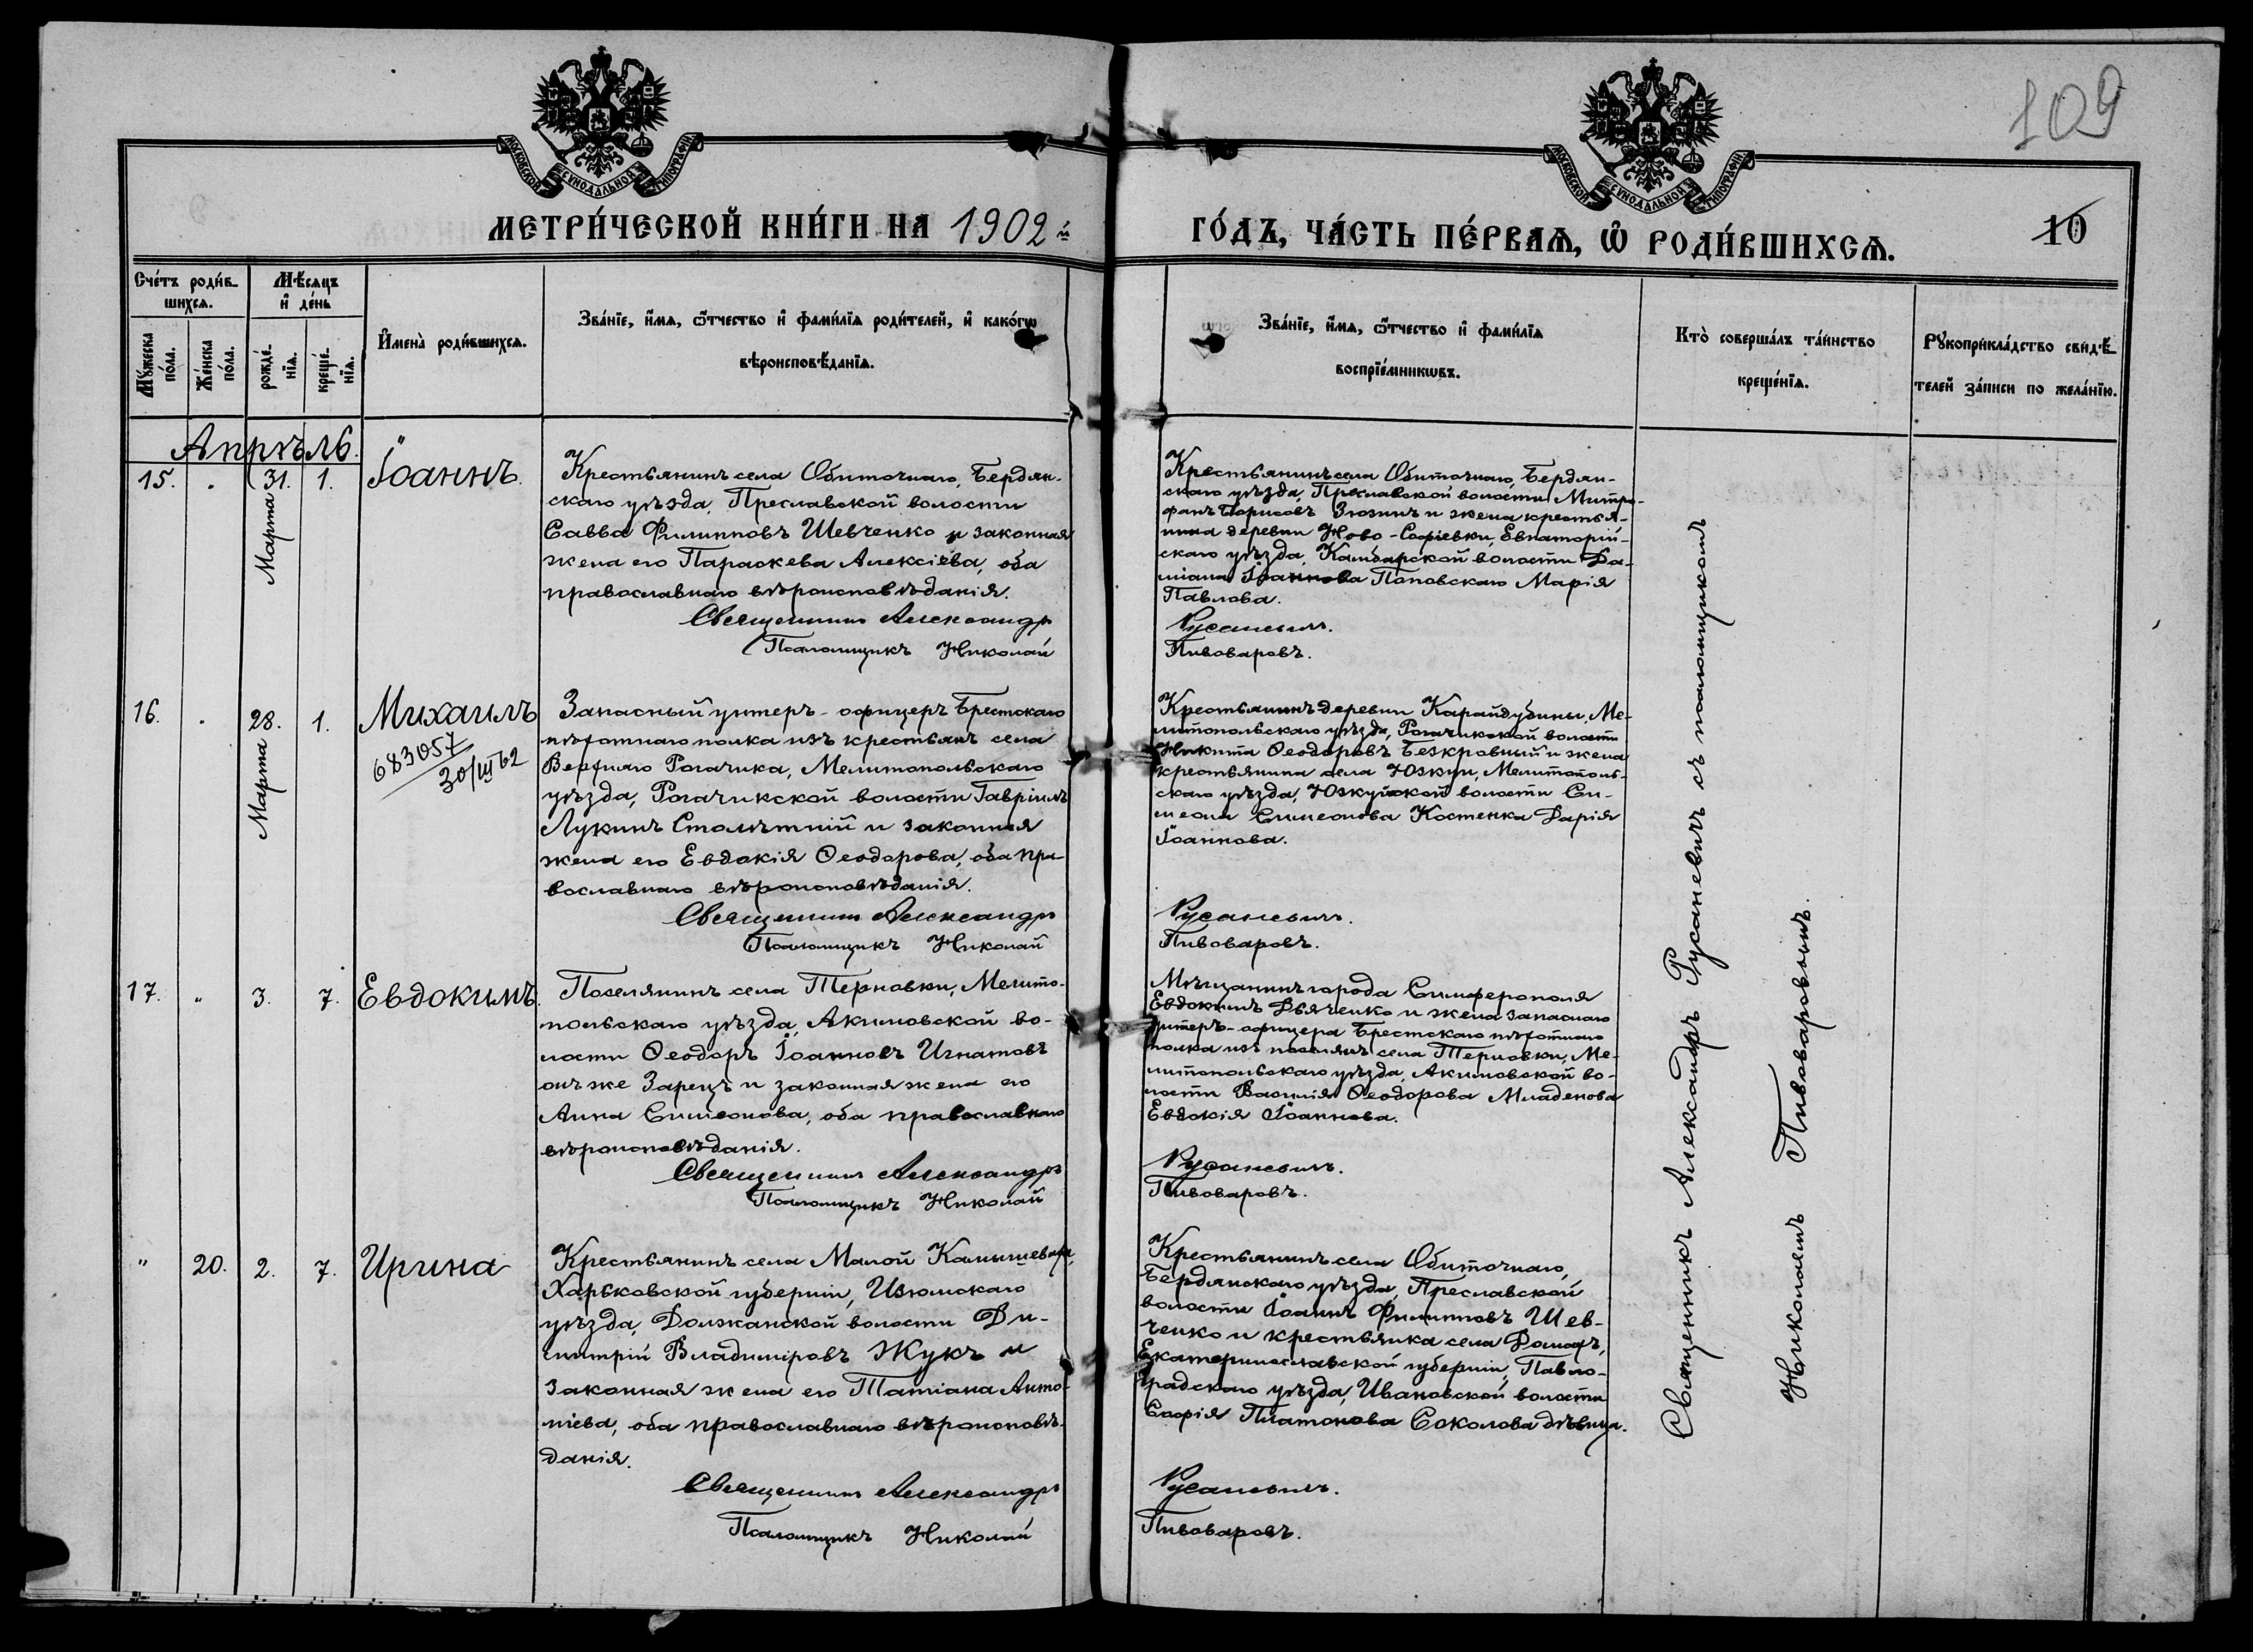 109
МОСКОВСКОЙ СУНОДАЛЬНОЙ ТИПОГРАФІИ
МОСКОВСКОЙ СУНОДАЛЬНОЙ ТИПОГРАФІИ
МЕТРИ́ЧЕСКОЙ КНИ́ГИ НА 1902 й
ГО́ДЪ, ЧА́СТЬ ПЕ́РВАѦ, Ѽ РОДИ́ВШИХСѦ.
10
Сче́тъ роди́в-
шихсѧ.
Мꙋ́жеска
по́ла.
Же́нска
по́ла.
Мѣ́сѧцъ
и҆ де́нь
рожде́-
нїѧ.
креще́-
нїѧ.
И҆мена̀ роди́вшихсѧ.
Зва́нїе, и҆́мѧ, ѻ҆́тчество и҆ фами́лїѧ роди́телей, и҆ како́гѡ
вѣроисповѣ́данїѧ.
Зва́нїе, и҆́мѧ, ѻ҆́тчество и҆ фами́лїѧ
воспрїе́мникѡвъ.
Кто̀ соверша́лъ та́инство
креще́нїѧ.
Рꙋкоприкла́дство свидѣ́-
телей за́писи по жела́нїю.
Апрѣль.
15. „ 31. 1. Іоаннъ.
Марта
Крестьянинъ села Обиточнаго, Бердян-
скаго уѣзда, Преславской волости
Савва Филипповъ Шевченко и законная
жена его Параскева Алексіева, оба
православнаго вѣроисповѣданія.
Священникъ Александръ
Псаломщикъ Николай
Крестьянинъ села Обиточнаго, Бердян-
скаго уѣзда, Преславской волости Митро-
фанъ Борисовъ Зюзинъ и жена крестья-
нина деревни Ново-Софіевки, Евпаторій-
скаго уѣзда, Камбарской волости Да-
міана Іоаннова Поповскаго Марія
Павлова.
Русаневичъ.
Пивоваровъ.
16. „ 28. 1. Михаилъ
Марта
683057
30/III 62
Запасный унтеръ-офицеръ Брестскаго
пѣхотнаго полка изъ крестьянъ села
Верхняго Рогачика, Мелитопольскаго
уѣзда, Рогачикской волости Гавріилъ
Лукинъ Столѣтній и законная
жена его Евдокія Ѳеодорова, оба пра-
вославнаго вѣроисповѣданія.
Священникъ Александръ
Псаломщикъ Николай
Крестьянинъ деревни Карайдубины, Ме-
литопольскаго уѣзда, Рогачикской волости
Никита Ѳеодоровъ Безкровный и жена
крестьянина села Юзкуи, Мелитополь-
скаго уѣзда, Юзкуйской волости Си-
меона Симеонова Костенка Дарія
Іоаннова.
Русаневичъ.
Пивоваровъ.
17. „ 3. 7. Евдокимъ.
Поселянинъ села Терновки, Мелито-
польскаго уѣзда, Акимовской во-
лости Ѳеодоръ Іоанновъ Игнатовъ
онъ же Зарецъ и законная жена его
Анна Симеонова, оба православнаго
вѣроисповѣданія.
Священникъ Александръ
Псаломщикъ Николай
Мѣщанинъ города Симферополя
Евдокимъ Дьяченко и жена запаснаго
унтеръ-офицера Брестскаго пѣхотнаго
полка изъ поселянъ села Терновки, Ме-
литопольскаго уѣзда, Акимовской во-
лости Василія Ѳеодорова Младенова
Евдокія Іоаннова.
Русаневичъ.
Пивоваровъ.
„ 20. 2. 7. Ирина
Крестьянинъ села Малой Камышевахи,
Харьковской губерніи, Изюмскаго
уѣзда, Должанской волости Ди-
митрій Владиміровъ Жукъ и
законная жена его Татіана Анто-
ніева, оба православнаго вѣроисповѣ-
данія.
Священникъ Александръ
Псаломщикъ Николай
Крестьянинъ села Обиточнаго,
Бердянскаго уѣзда, Преславской
волости Іоаннъ Филипповъ Шев-
ченко и крестьянка села Домахъ,
Екатеринославской губерніи, Павло-
градскаго уѣзда, Ивановской волости
Софія Платонова Соколова дѣвица.
Русаневичъ.
Пивоваровъ.
Священникъ Александръ Русаневичъ съ псаломщикомъ
Николаемъ Пивоваровымъ.